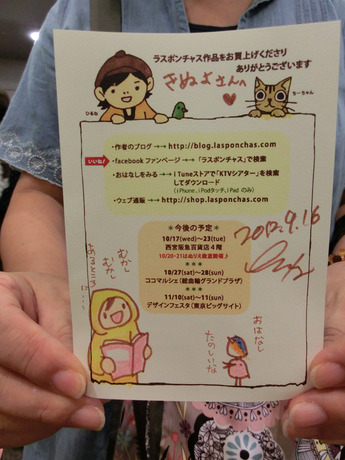 ラスポンチャス作品をお買上げくださり
ありがとうございます
きぬよさんへ
ひるね
ちーちゃん
・作者のブログ →→ http://blog.lasponchas.com
いいね!
・facebook ファンページ →→「ラスポンチャス」で検索
・おはなしをみる →→ iTuneストアで「KTVシアター」を検索
してダウンロード
(iPhone、iPodタッチ、iPad のみ)
・ウェブ通販 →→ http://shop.lasponchas.com
＊今後の予定＊
10/17(wed)〜23(tue)
西宮阪急百貨店4階
10/20-21はぬりえ教室開催♪
＊＊＊
10/27(sat)〜28(sun)
ココマルシェ(銀座グランドプラザ)
＊＊＊
11/10(sat)〜11(sun)
デザインフェスタ(東京ビッグサイト)
2012.9.16
むかし
むかし
あるところ
に…
おはなし
たのしいな